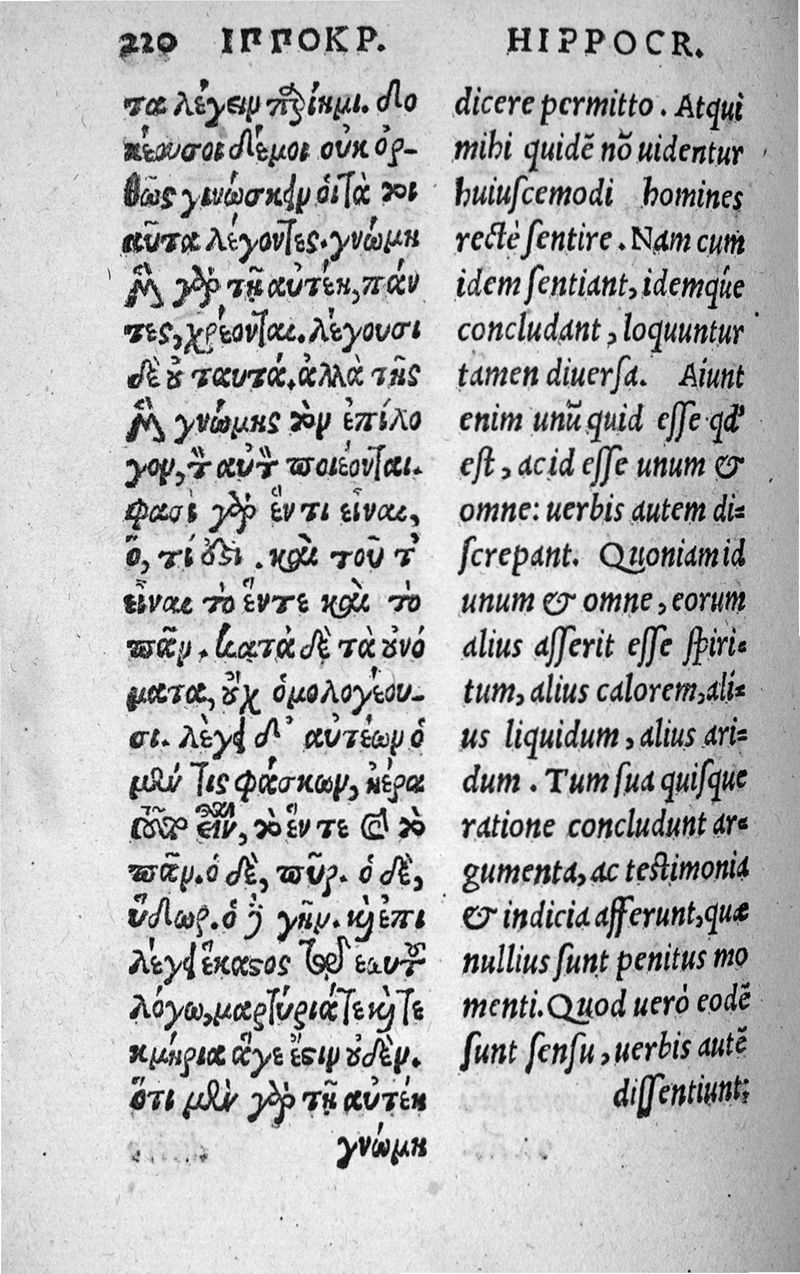 220 ΙΠΠΟΚΡ.
τα λέγειν παρίημι. δο
κέουσοι δέμοι οὐκ ὀρ-
θῶς γινώσκειν οἱ τὰ τοι
αῦτα λέγοντες. γνώμη
μὲν γὰρ τῇ αὐτέη, πάν
τες, χρέονται. λέγουσι
δὲ οὐ ταυτά. ἀλλὰ τῆς
μὲν γνώμης τὸν ἐπίλο
γον, τὸν αὐτὸν ποιέονται.
φασὶ γὰρ ἕν τι εἶναι,
ὅ, τί ἐστι . καὶ τοῦτ'
εἶναι τὸ ἕν τε καὶ τὸ
πᾶν. κατὰ δὲ τὰ οὐνό
ματα, οὐχ ὁμολογέου-
σι. λέγει δ' αὐτέων ὁ
μέν τις φάσκων, ἠέρα
τοῦτο εἶναι, τὸ ἕν τε καὶ τὸ
πᾶν. ὁ δὲ, πῦρ. ὁ δὲ,
ὕδωρ. ὁ δὲ γῆν. καὶ ἐπι
λέγει ἕκαστος τῷ ἑαυτοῦ
λόγω, μαρτύριά τε καὶ τε
κμήρια ἅ γε ἔστιν οὐδέν.
ὅτι μὲν γὰρ τῇ αὐτέη
γνώμη
HIPPOCR.
dicere permitto. Atqui
mihi quidē nō uidentur
huiuſcemodi homines
rectè ſentire. Nam cum
idem ſentiant, idemq́ue
concludant, loquuntur
tamen diuerſa. Aiunt
enim unū quid eſſe qđ
eſt, ac id eſſe unum &
omne: uerbis autem di-
ſcrepant. Quoniam id
unum & omne, eorum
alius aſſerit eſſe ſpiri-
tum, alius calorem, ali-
us liquidum, alius ari-
dum. Tum ſua quiſque
ratione concludunt ar-
gumenta, ac teſtimonia
& indicia afferunt, quæ
nullius ſunt penitus mo
menti. Quod ueró eodē
ſunt ſenſu, uerbis autē
diſſentiunt: